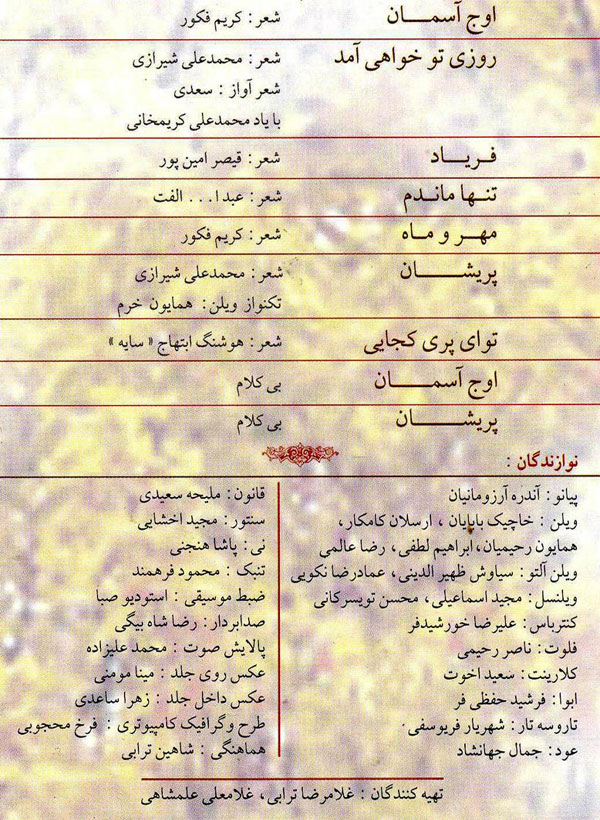 اوج آسمـــــان شعر : کریم فکور
روزی تو خواهی آمد شعر : محمدعلی شیرازی
شعر آواز : سعدی
با یاد محمدعلی کریمخانی
فـریــاد شعر : قیصر امین پور
تنـها ماندم شعر : عبدا. . . الفت
مهـر و مـاه شعر : کریم فکور
پریشـــــــان شعر : محمدعلی شیرازی
تکنواز ویلن: همایون خرم
توای پری کجایی شعر : هوشنگ ابتهاج « سایه »
اوج آسمـــــان بی کلام
پریشـــــــان بی کلام
نوازندگان :
پیانو : آندره آرزومانیان
ویلن : خاچیک بابایان ، ارسلان کامکار،
همایون رحیمیان،ابراهیم لطفی، رضا عالمی
ویلن آلتو : سیاوش ظهیر الدینی، عمادرضا نکویی
ویلنسل : مجید اسماعیلی، محسن تویسرکانی
کنترباس : علیرضا خورشیدفر
فلوت : ناصر رحیمی
کلارینت : سعید اخوت
ابوا : فرشید حفظی فر
تاروسه تار : شهریار فریوسفی
عود : جمال جهانشاد
قانون : ملیحه سعیدی
سنتور : مجید اخشابی
نی : پاشا هنجنی
تنبک : محمود فرهمند
ضبط موسیقی : استودیو صبا
صدابردار : رضا شاه بیگی
پالایش صوت : محمد علیزاده
عکس روی جلد : مینا مومنی
عکس داخل جلد : زهرا ساعدی
طرح وگرافیک کامپیوتری : فرخ محجوبی
هماهنگی : شاهین ترابی
تهیه کنندگان : غلامرضا ترابی، غلامعلی علمشاهی